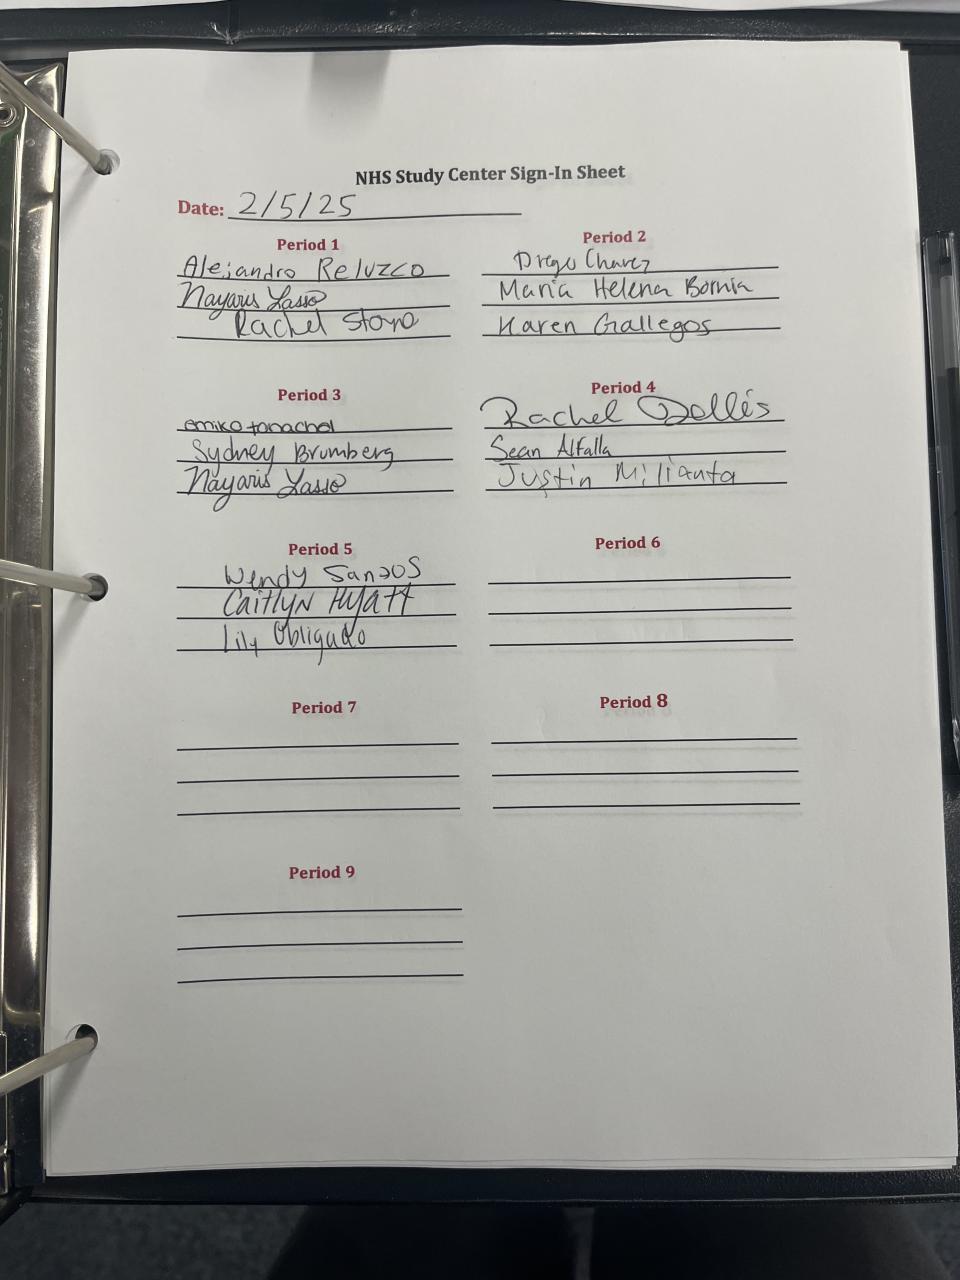 NHS Study Center Sign-In Sheet
Date: 2/5/25
Period 1
Alejandro Reluzco
Nayaris Lasso
Rachel
Period 2
Diego Chavez
Maria Helena Bornia
Karen Gallegos
Period 3
emiko tanachol
Sydney Brumberg
Nayaris Lasso
Period 4
Rachel
Sean Alfalla
Justin Milianta
Period 5
Wendy
Caitlyn Hyatt
Lily Obligado
Period 6
Period 7
Period 8
Period 9